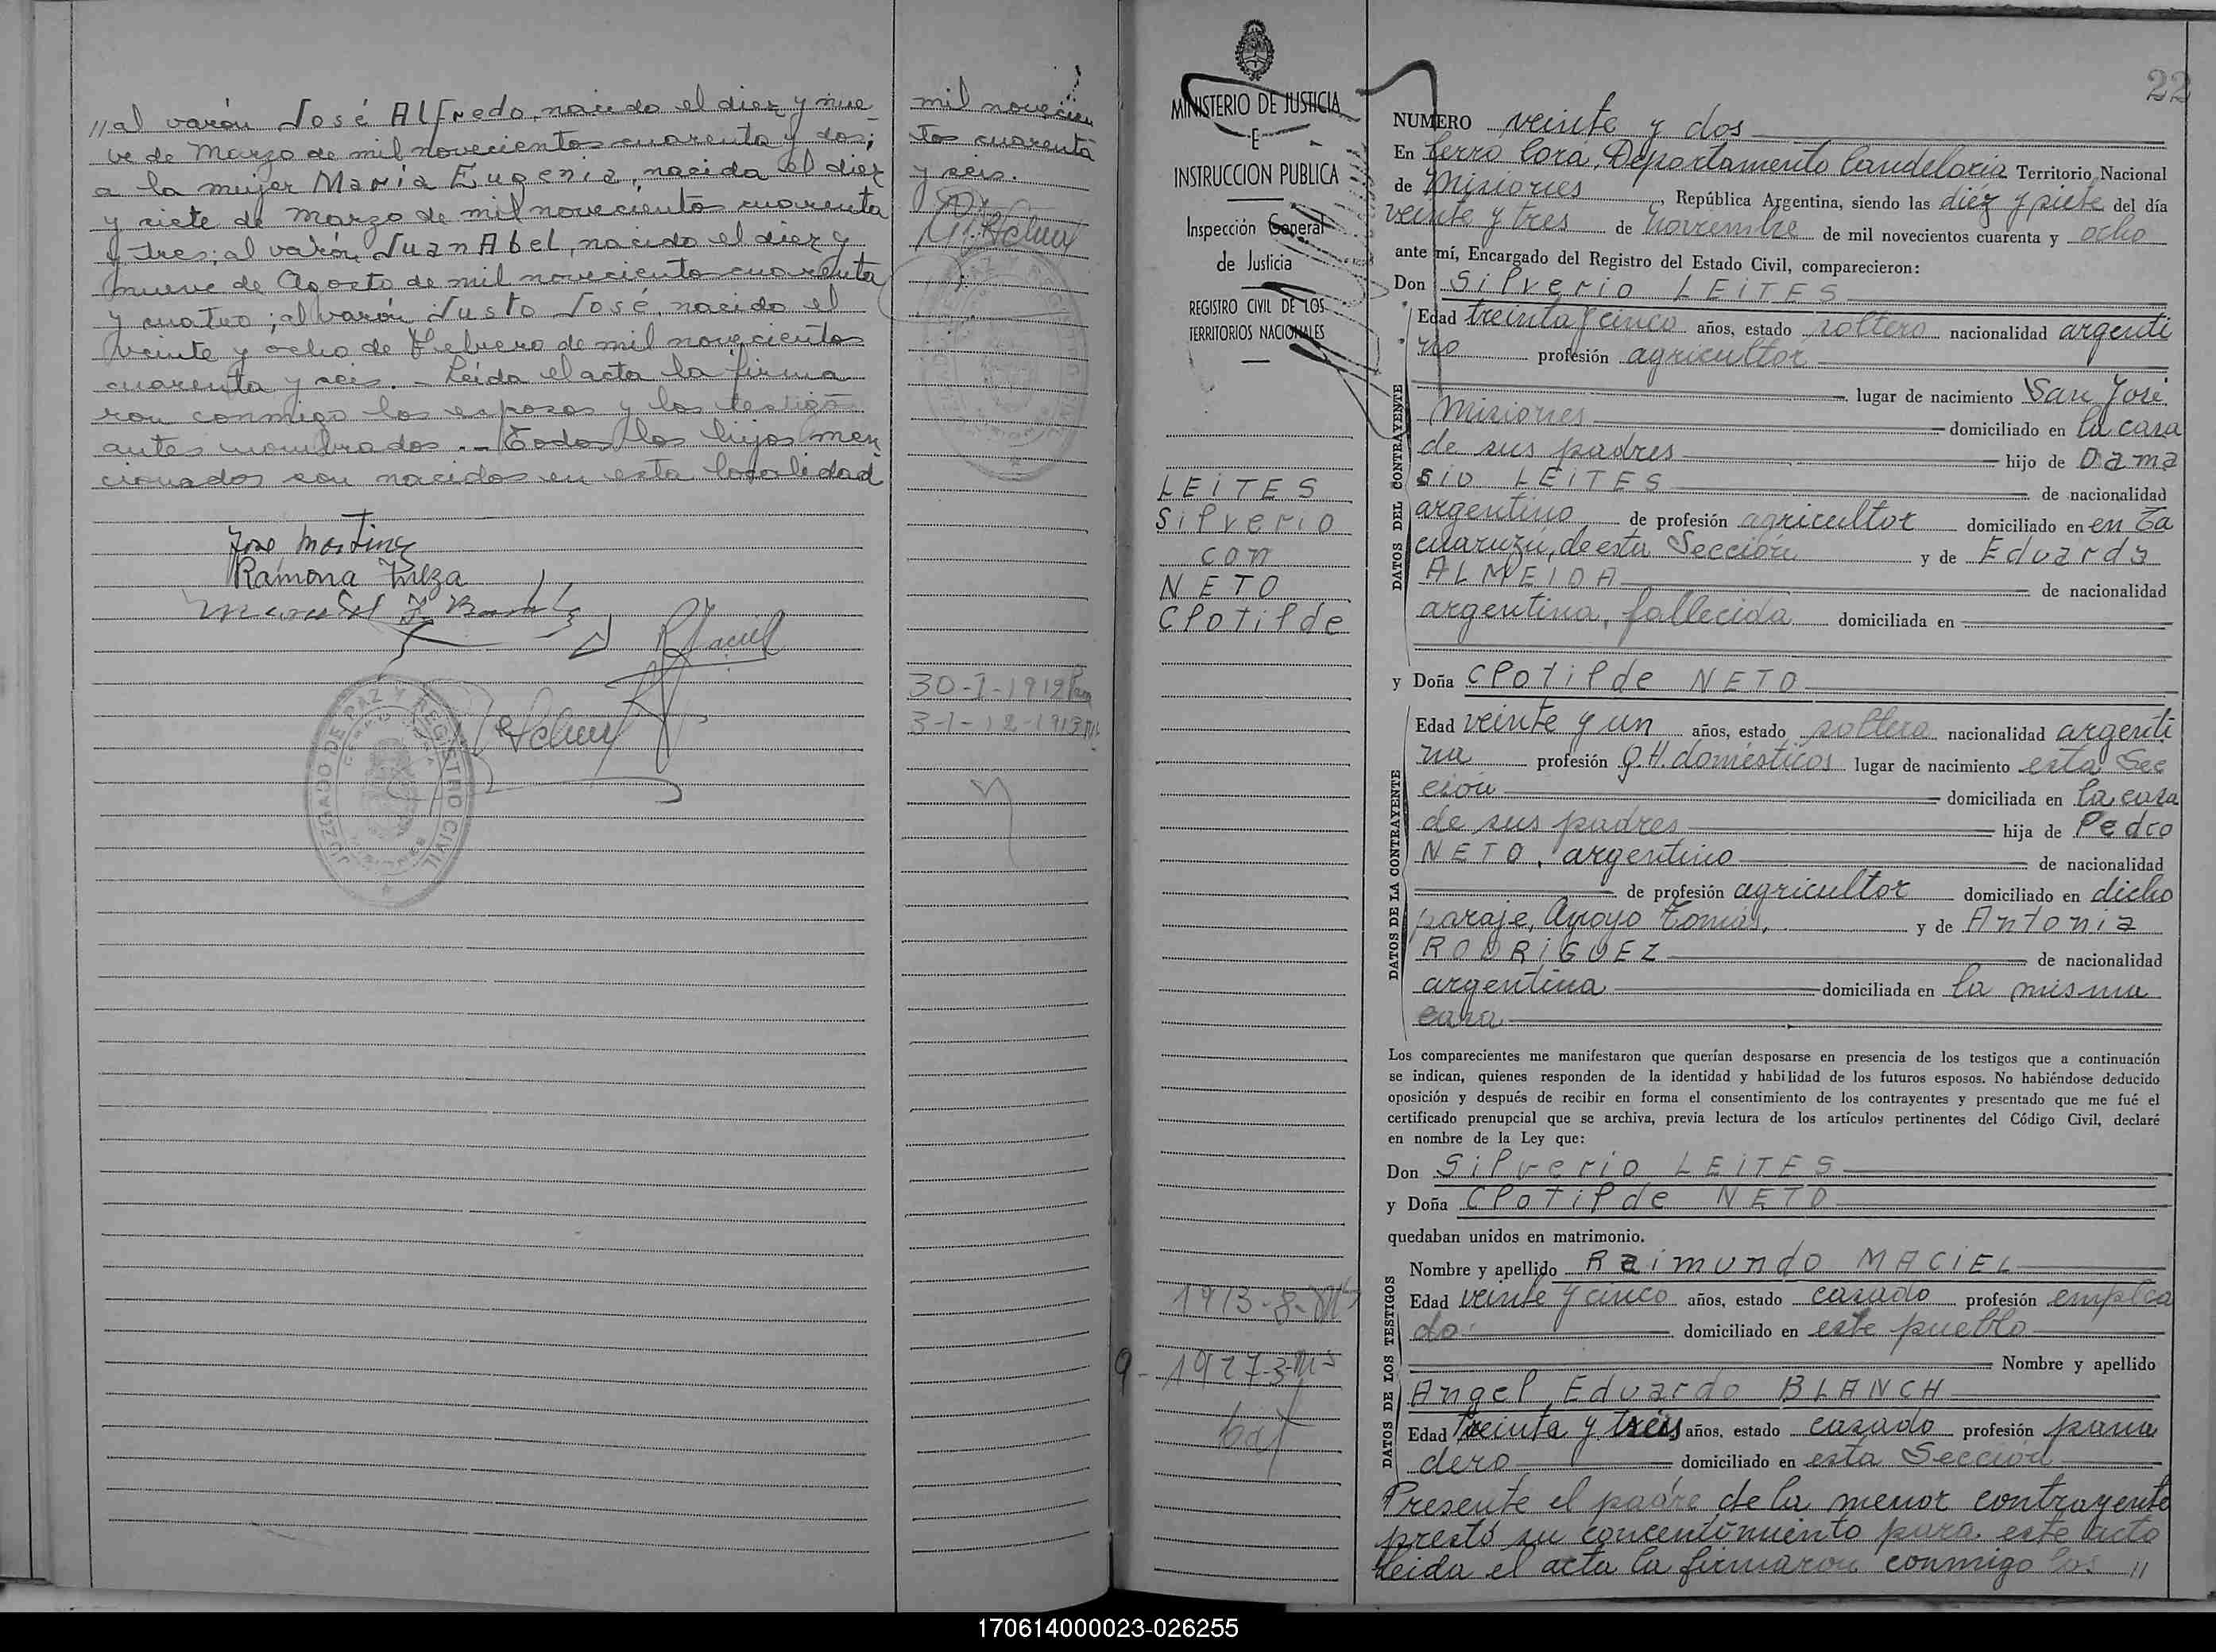 //al varón José Alfredo, nacido el diez y nue
ve de Marzo de mil novecientos cuarenta y dos;
a la mujer María Eugenia, nacida el diez
y siete de Marzo de mil novecientos cuarenta
y tres; al varón Juan Abel, nacido el diez y
nueve de Agosto de mil novecientos cuarenta
y cuatro; al varón Justo José, nacido el
veinte y ocho de Febrero de mil novecientos
cuarenta y seis. - Leida el acta la firma
ron conmigo los esposos y los testigos
antes nombrados. - Todos los hijos men
cionados son nacidos en esta localidad
José Martinez
Ramona Meza
JUZGADO DE PAZ Y REGISTRO CIVIL
mil novecien
tos cuarenta
y seis.
30-1-1912
3-1-12-1913
MINISTERIO DE JUSTICIA
E
INSTRUCCION PUBLICA
Inspección General
de Justicia
REGISTRO CIVIL DE LOS
TERRITORIOS NACIONALES
LEITES
Silverio
con
NETO
Clotilde
1913-8-
9-1927-3-
22
NUMERO veinte y dos
En Cerro Corá, Departamento Candelaria Territorio Nacional
de Misiones, República Argentina, siendo las diez y siete del día
veinte y tres de Noviembre de mil novecientos cuarenta y ocho
ante mí, Encargado del Registro del Estado Civil, comparecieron:
Don Silverio LEITES
DATOS DEL CONTRAYENTE
Edad treinta y cinco años, estado soltero nacionalidad argenti
no profesión agricultor
lugar de nacimiento San José
Misiones domiciliado en la casa
de sus padres hijo de Dama
sio LEITES de nacionalidad
argentino de profesión agricultor domiciliado en en Ta
cuaruzu, de esta Sección y de Eduarda
ALMEIDA de nacionalidad
argentina, fallecida domiciliada en
y Doña Clotilde NETO
DATOS DE LA CONTRAYENTE
Edad veinte y un años, estado soltera nacionalidad argenti
na profesión Q.H. domésticos lugar de nacimiento esta Sec
ción domiciliada en la casa
de sus padres hija de Pedro
NETO, argentino de nacionalidad
de profesión agricultor domiciliado en dicho
paraje, Arroyo Tomás, y de Antonia
RODRIGUEZ de nacionalidad
argentina domiciliada en la misma
casa
Los comparecientes me manifestaron que querían desposarse en presencia de los testigos que a continuación
se indican, quienes responden de la identidad y habilidad de los futuros esposos. No habiéndose deducido
oposición y después de recibir en forma el consentimiento de los contrayentes y presentado que me fué el
certificado prenupcial que se archiva, previa lectura de los artículos pertinentes del Código Civil, declaré
en nombre de la Ley que:
Don Silverio LEITES
y Doña Clotilde NETO
quedaban unidos en matrimonio.
DATOS DE LOS TESTIGOS
Nombre y apellido Raimundo MACIEL
Edad veinte y cinco años, estado casado profesión emplea
do domiciliado en este pueblo
Nombre y apellido
Angel Eduardo BLANCH
Edad treinta y tres años, estado casado profesión pana
dero domiciliado en esta Sección
Presente el padre de la menor contrayente
prestó su concentimiento para este acto
Leida el acta la firmaron conmigo los //
170614000023-026255